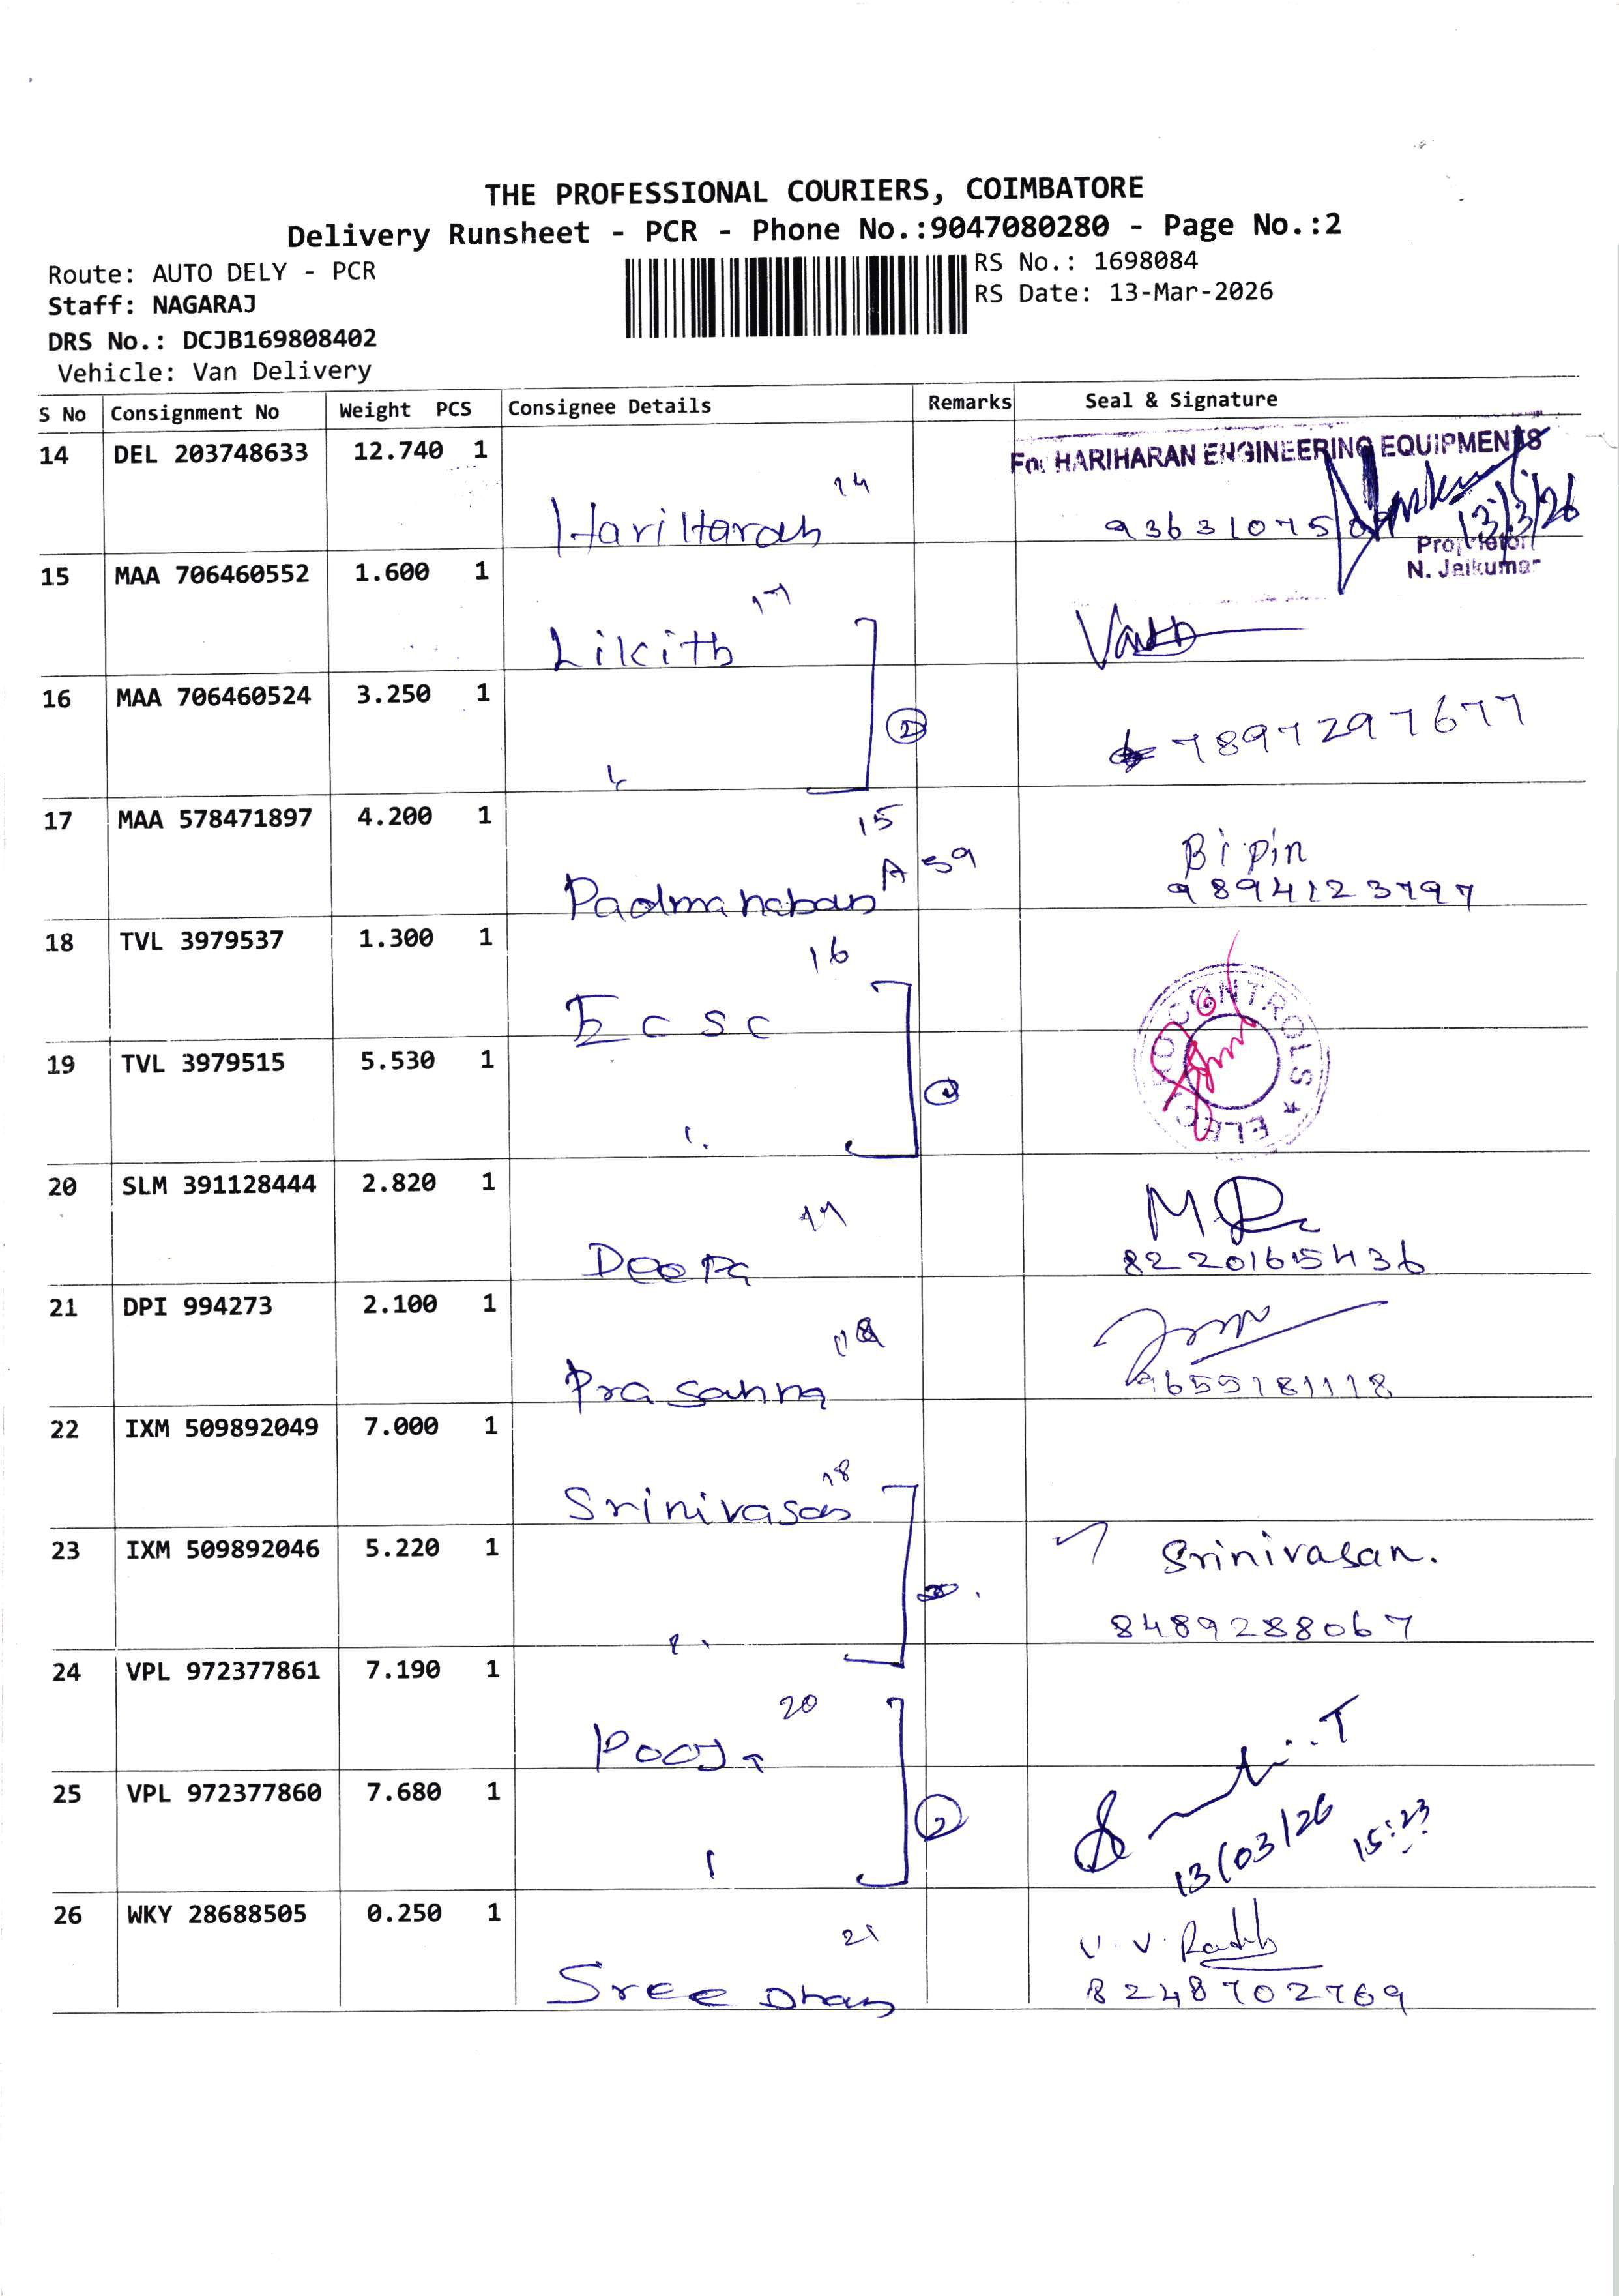 THE PROFESSIONAL COURIERS, COIMBATORE
Delivery Runsheet - PCR - Phone No.:9047080280 - Page No.:2
Route: AUTO DELY - PCR
RS No.: 1698084
Staff: NAGARAJ
RS Date: 13-Mar-2026
DRS No.: DCJB169808402
Vehicle: Van Delivery
S No Consignment No Weight PCS Consignee Details Remarks Seal & Signature
14 DEL 203748633 12.740 1
For HARIHARAN ENGINEERING EQUIPMENTS
14
HariHaran 93631075
13/3/26
Proprietor
N. Jaikumar
15 MAA 706460552 1.600 1
17
Likith
16 MAA 706460524 3.250 1
2
7897297677
17 MAA 578471897 4.200 1
15
A 59
Padmanaban
Bipin
9894123797
18 TVL 3979537 1.300 1
16
Ecsc
CONTROLS ★ ELEC
19 TVL 3979515 5.530 1
20 SLM 391128444 2.820 1
Deepa
8220165436
21 DPI 994273 2.100 1
18
Prasanna
9655181118
22 IXM 509892049 7.000 1
18
Srinivasan
23 IXM 509892046 5.220 1
Srinivasan.
8489288067
24 VPL 972377861 7.190 1
20
Pooja
25 VPL 972377860 7.680 1
2
13/03/26 15:23
26 WKY 28688505 0.250 1
21
V. V.
Sree Dhan 8248702769